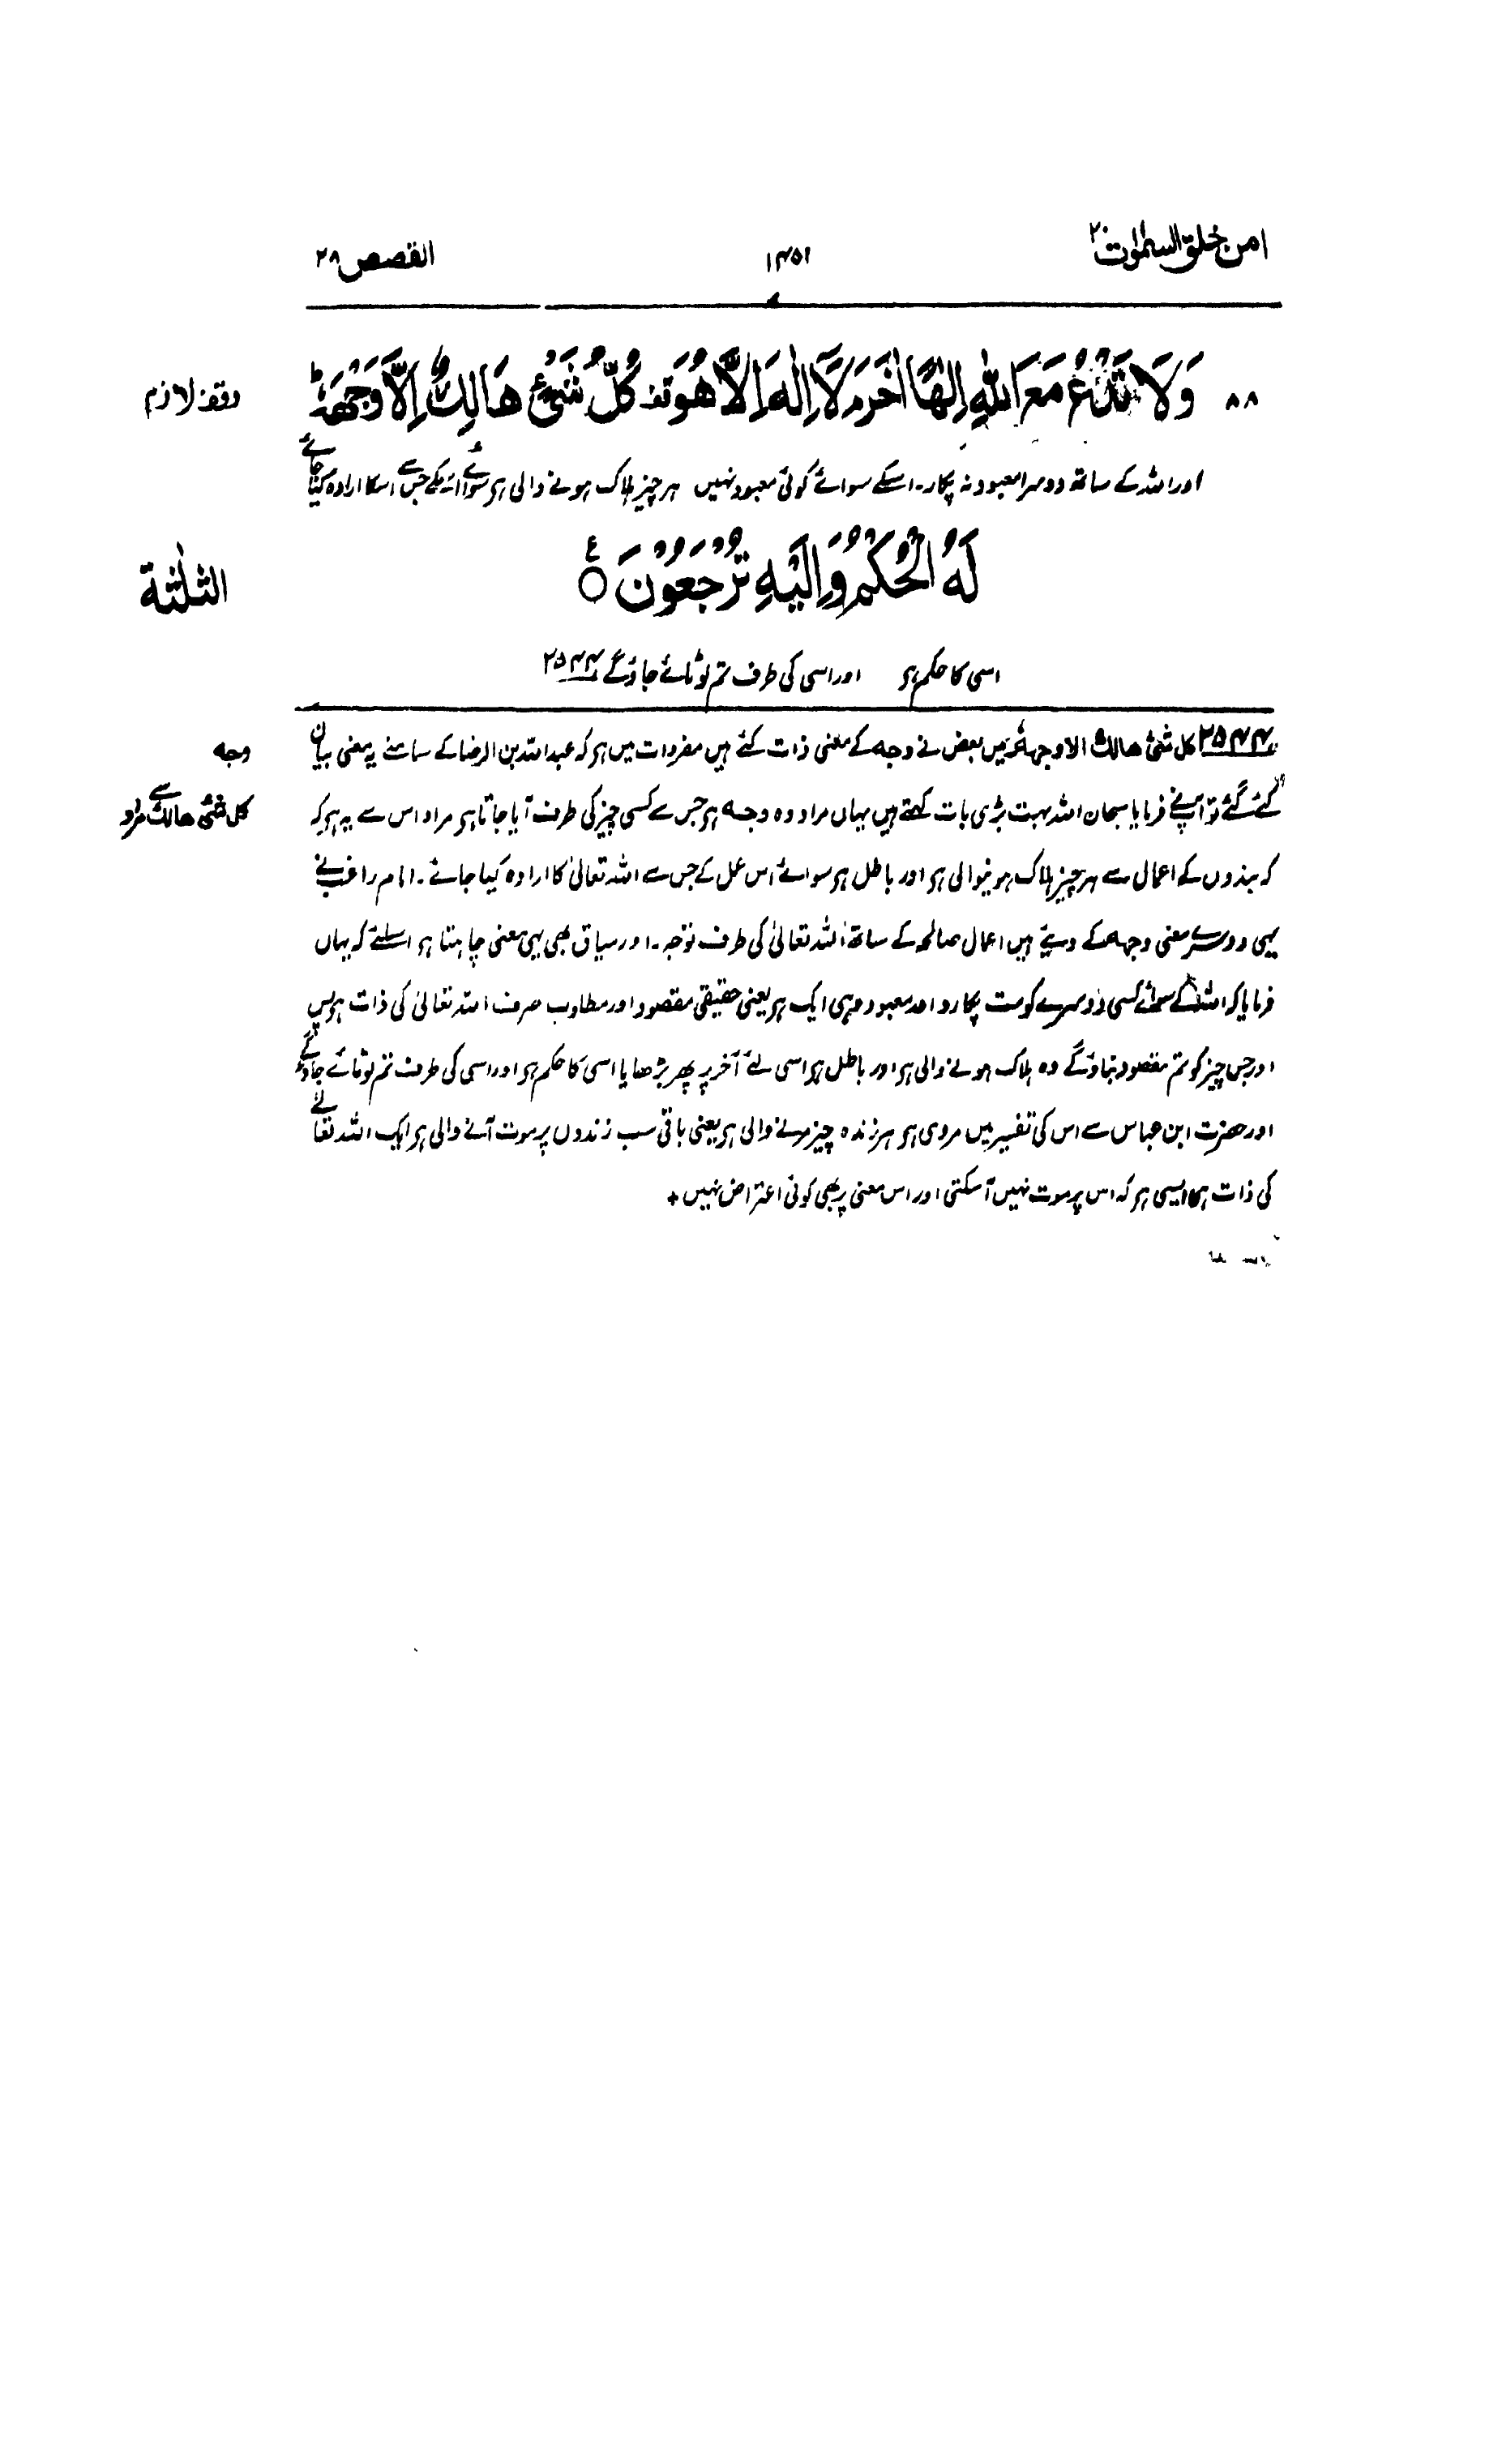 امن خلق السمٰوات ۲۰
۱۴۵۱
القصص ۲۸
۸۸ وَلَا تَدْعُ مَعَ اللّٰهِ اِلٰهًا اٰخَرَ م لَاۤ اِلٰهَ اِلَّا هُوَ قف كُلُّ شَیْءٍ هَالِكٌ اِلَّا وَجْهَهٗ ط
وقف لازم
اور اللہ کے ساتھ دوسرا معبود نہ پکار۔ اسکے سوائے کوئی معبود نہیں ہر چیز ہلاک ہونے والی ہر سوائے اسکے جس سے اسکا ارادہ کیا جائے
لَهُ الْحُكْمُ وَاِلَیْهِ تُرْجَعُوْنَ ۝ ع
الثلٰثة
اسی کا حکم ہر اور اسی کی طرف تم لوٹائے جاؤگے ۲۵۴۴
۲۵۴۴ كل شیٔ هالك الا وجهه میں بعض نے وجه کے معنی ذات کئے ہیں مفردات میں ہر کہ عبد اللہ بن الرضا کے سامنے یہ معنی بیان
وجه
کئے گئے تو آپنے فرمایا سبحان اللہ بہت بڑی بات کہتے ہیں یہاں مراد وہ وجه ہر جس سے کسی چیز کی طرف آیا جاتا ہر مراد اس سے یہ ہر کہ
كل شیٔ هالك سے مراد
کہ بندوں کے اعمال سے ہر چیز ہلاک ہونیوالی ہر اور باطل ہر سوائے اس عمل کے جس سے اللہ تعالیٰ کا ارادہ کیا جائے۔ امام راغب نے
یہی دوسرے معنی وجهه کے دیئے ہیں اعمال صالحہ کے ساتھ اللہ تعالیٰ کی طرف توجہ۔ اور سیاق بھی یہی معنی چاہتا ہر اسلئے کہ یہاں
فرمایا کہ اللہ کے سوائے کسی دوسرے کو مت پکارو اور معبود وہی ایک ہر یعنی حقیقی مقصود اور مطلوب صرف اللہ تعالیٰ کی ذات ہر پس
اور جس چیز کو تم مقصود بناؤگے وہ ہلاک ہونے والی ہر اور باطل ہر اسی لئے آخر پر پھر بڑھایا اسی کا حکم ہر اور اسی کی طرف تم لوٹائے جاؤگے
اور حضرت ابن عباس سے اس کی تفسیر میں مروی ہر ہر زندہ چیز مرنے والی ہر یعنی باقی سب زندوں پر موت آنے والی ہر ایک اللہ تعالٰے
کی ذات ہی ایسی ہر کہ اس پر موت نہیں آسکتی اور اس معنی پر بھی کوئی اعتراض نہیں +